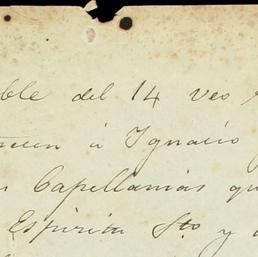 ble del 14 Veo
á Ignacio
Capellanias qu
Espiritu Sto y